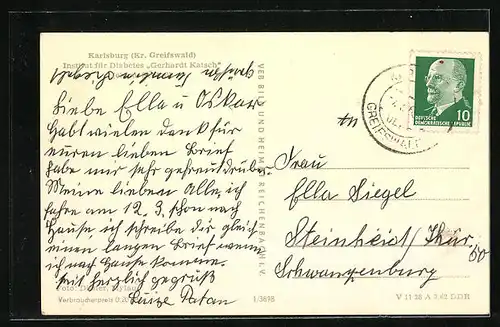 Karlsburg (Kr. Greifswald)
Institut für Diabetes „Gerhardt Katsch"
Liebe Ella u Oskar
Habt vielen Dank für
euren lieben Brief
habe mir sehr gefreut drüber
Meine lieben Alle, ich
fahre am 12. 3. schon nach
Hause ich schreibe dir gleich
einen langen Brief wenn
ich nach Hause komme.
mit herzlich gegrüß
Luize Patan
Verbraucherpreis 0,20
1/3618
VEB BILD UND HEIMAT REICHENBACH i. V.
GREIFSWALD
DEUTSCHE
DEMOKRATISCHE REPUBLIK
10
An
Frau
Ella Siegel
Steinheid/Thür.
Schwanzenburg 50
V 11 28 A 3/62 DDR